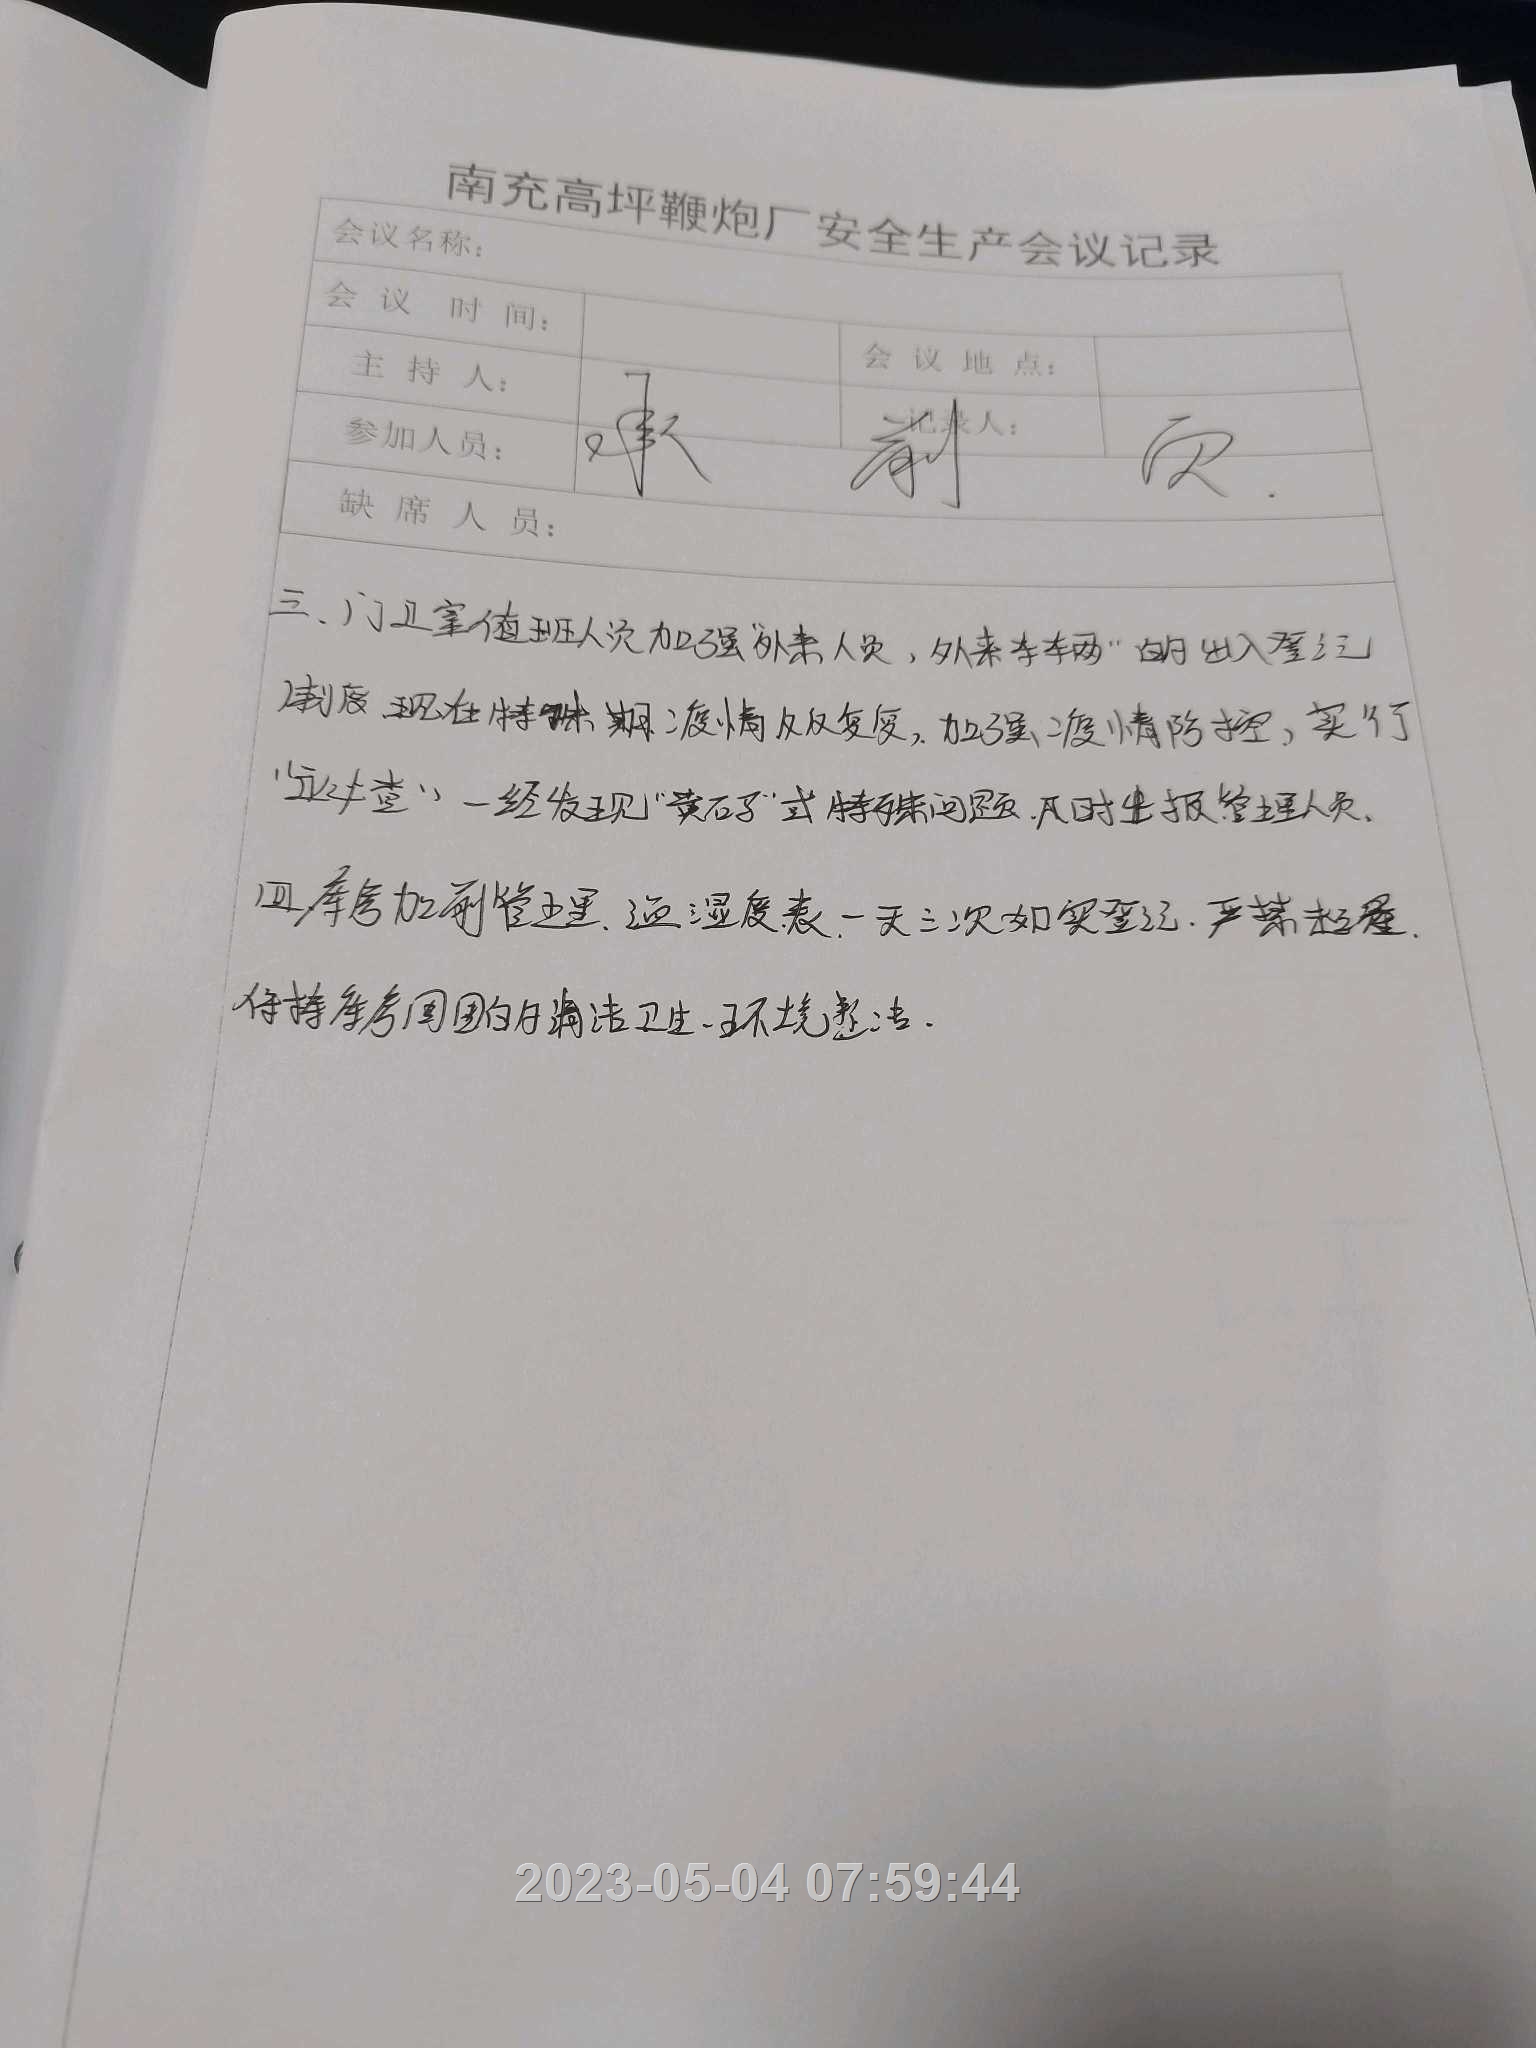 南充高坪鞭炮厂安全生产会议记录
会议名称：
会议时间：
会议地点：
主持人：
记录人：
参加人员：
承 前 页.
缺席人员：
三、门卫室值班人次加强"外来人员，外来车辆"的出入登记
制度 现在特殊期 疫情反反复复，加强疫情防控，实行
查" 一经发现"黄石子"式特殊问题.及时上报管理人员、
四.库房加前管理.温湿度表.一天三次如实登记.严禁超量.
保持库房周围的清洁卫生、环境整洁.
2023-05-04 07:59:44